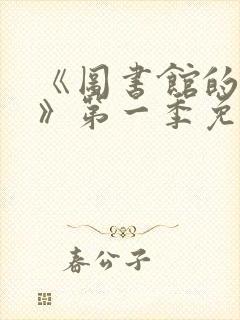 《圖書館的
》第一季免
春公子